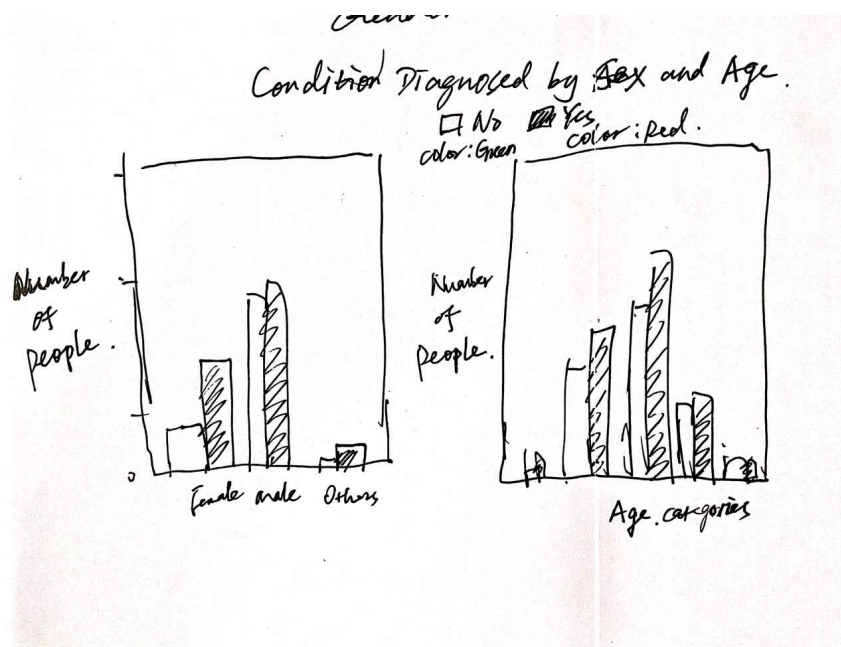 Condition Diagnosed by Sex and Age.
No Yes
color: Green color: Red.
Number
of
people.
0
Female male Others
Number
of
people.
Age categories